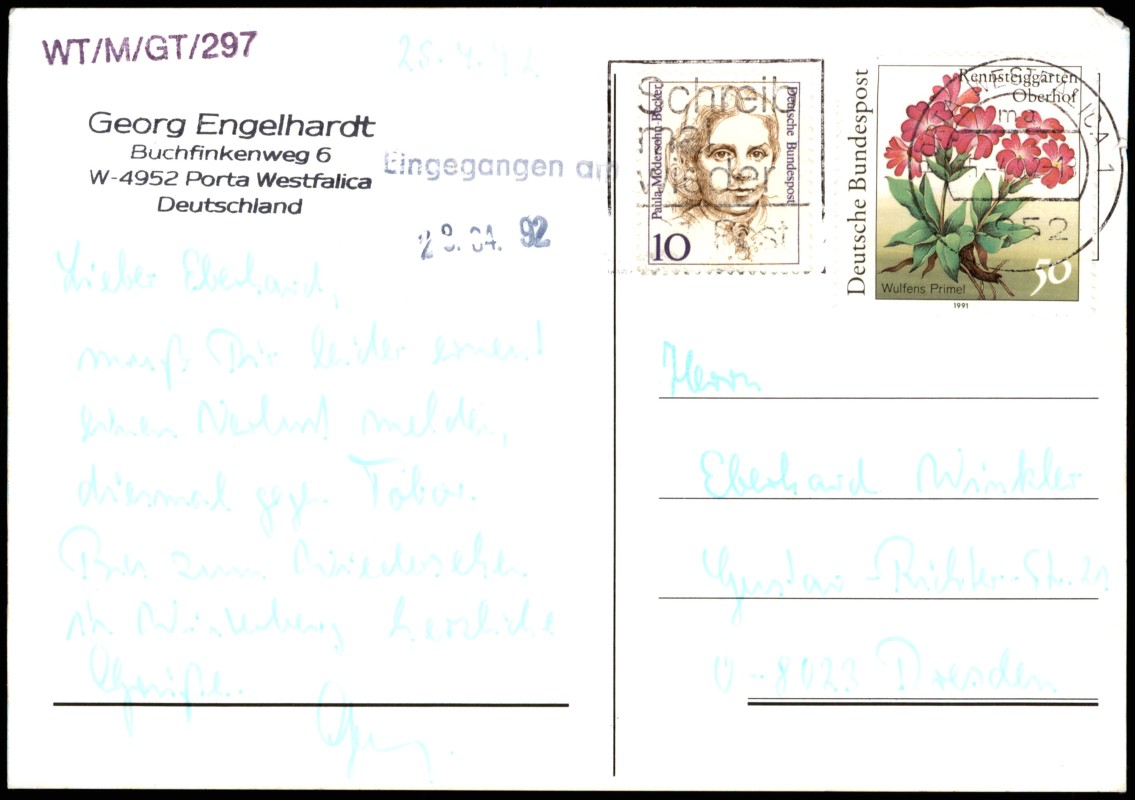 WT/M/GT/297
25.4.92
Georg Engelhardt
Buchfinkenweg 6
W-4952 Porta Westfalica
Deutschland
Eingegangen am
29. 04. 92
Lieber Eberhard,
muß Dir leider
einen Verlust melden,
diesmal gegen Tobor.
Bis zum Wiedersehen
in Winterberg herzliche
Grüße
Schreib
mal
wieder
Post
Paula Modersohn-Becker
Deutsche Bundespost
10
Deutsche Bundespost
Rennsteiggarten
Oberhof
50
Wulfens Primel
1991
Herrn
Eberhard Winkler
Gustav-Richter-Str. 21
O-8023 Dresden